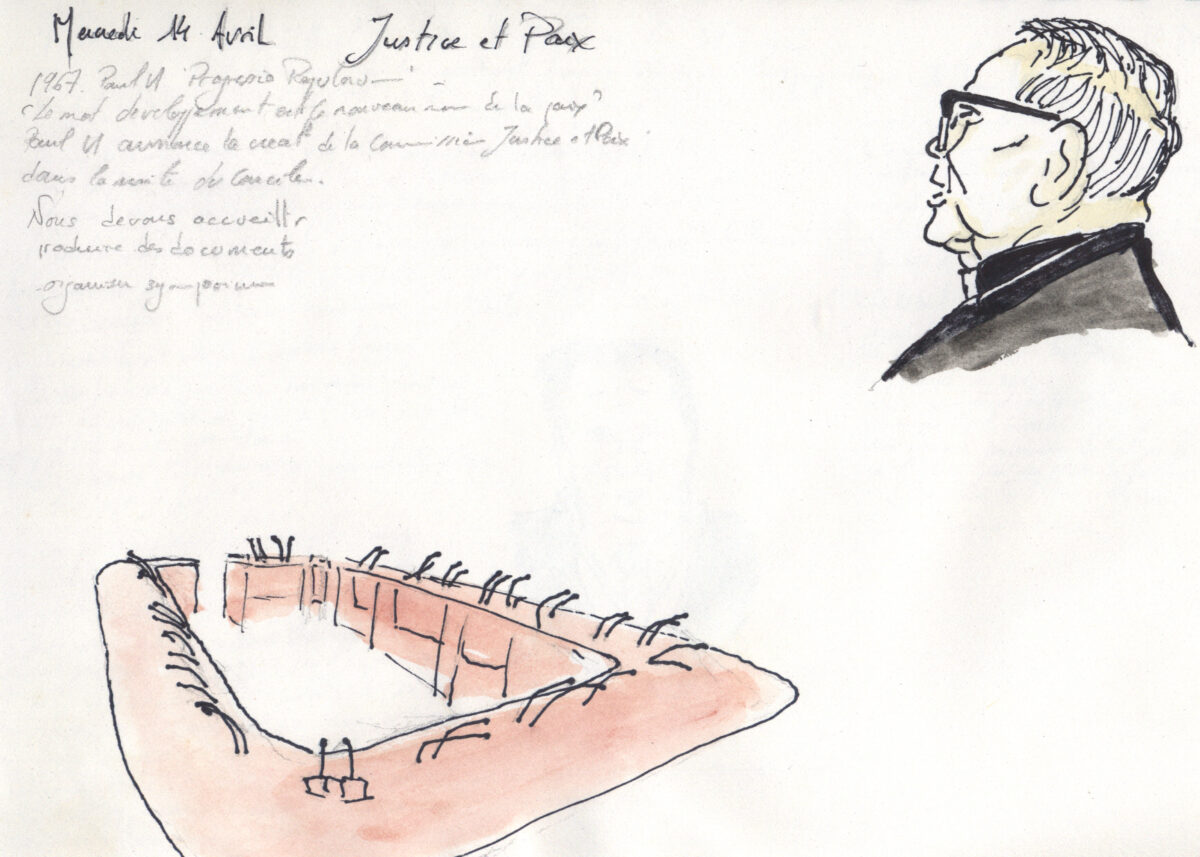 Mercredi 14 Avril Justice et Paix
1967. Paul VI "Progressio
"Le mot développement est le nouveau nom de la paix"
Paul VI annonce la creat° de la Commission Justice et Paix
dans la suite du Concile.
Nous devons accueillir
produire des documents
organiser symposium